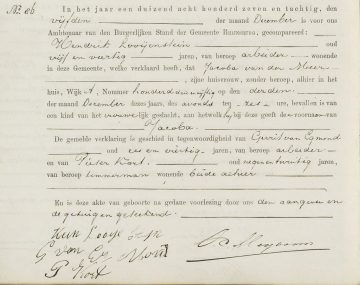 No. 66
In het jaar een duizend acht honderd zeven en tachtig, den
vijfden der maand December is voor ons
Ambtenaar van den Burgerlijken Stand der Gemeente gecompareerd:
Hendrik Looijenstein oud
vijf en veertig jaren, van beroep arbeider wonende
in deze Gemeente, welke verklaard heeft, dat Jacoba van der Meer
zijne huisvrouw, zonder beroep, alhier in het
huis, Wijk A, Nommer honderd op den derden
der maand December dezes jaars, des avonds ten zes ure, bevallen is van
een kind van het vrouwelijk geslacht, aan hetwelk hij bij deze geeft den voornaam van
Jacoba.
De gemelde verklaring is geschied in tegenwoordigheid van Gerrit van Egmond
oud zes en veertig jaren, van beroep arbeider
en van Pieter Kort, oud negenentwintig jaren,
van beroep timmerman wonende beide alhier
En is deze akte van geboorte na gedane voorlezing door ons, den aangever en
de getuigen geteekend.
G van Egmond
P Kort